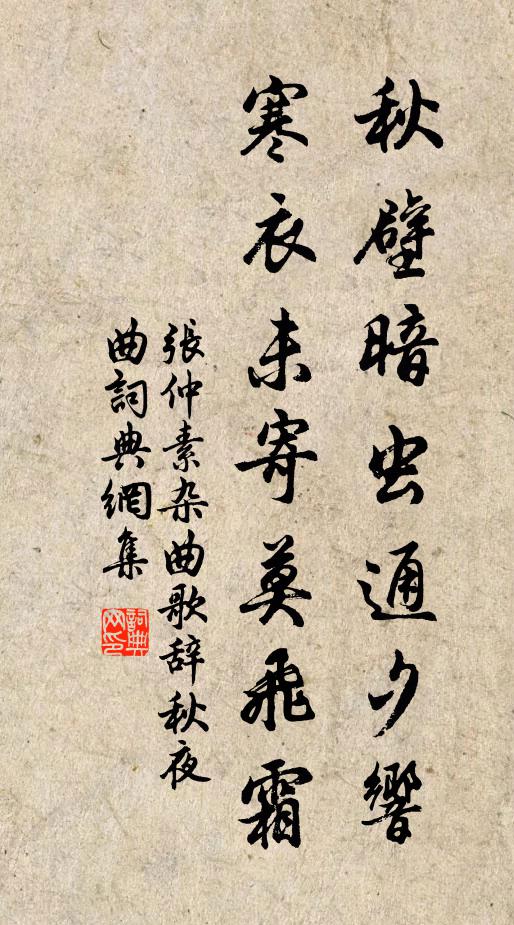 秋壁暗虫通夕響
寒衣未寄莫飛霜
張仲素杂曲歌辞秋夜
曲詞典網集
詞典
网印